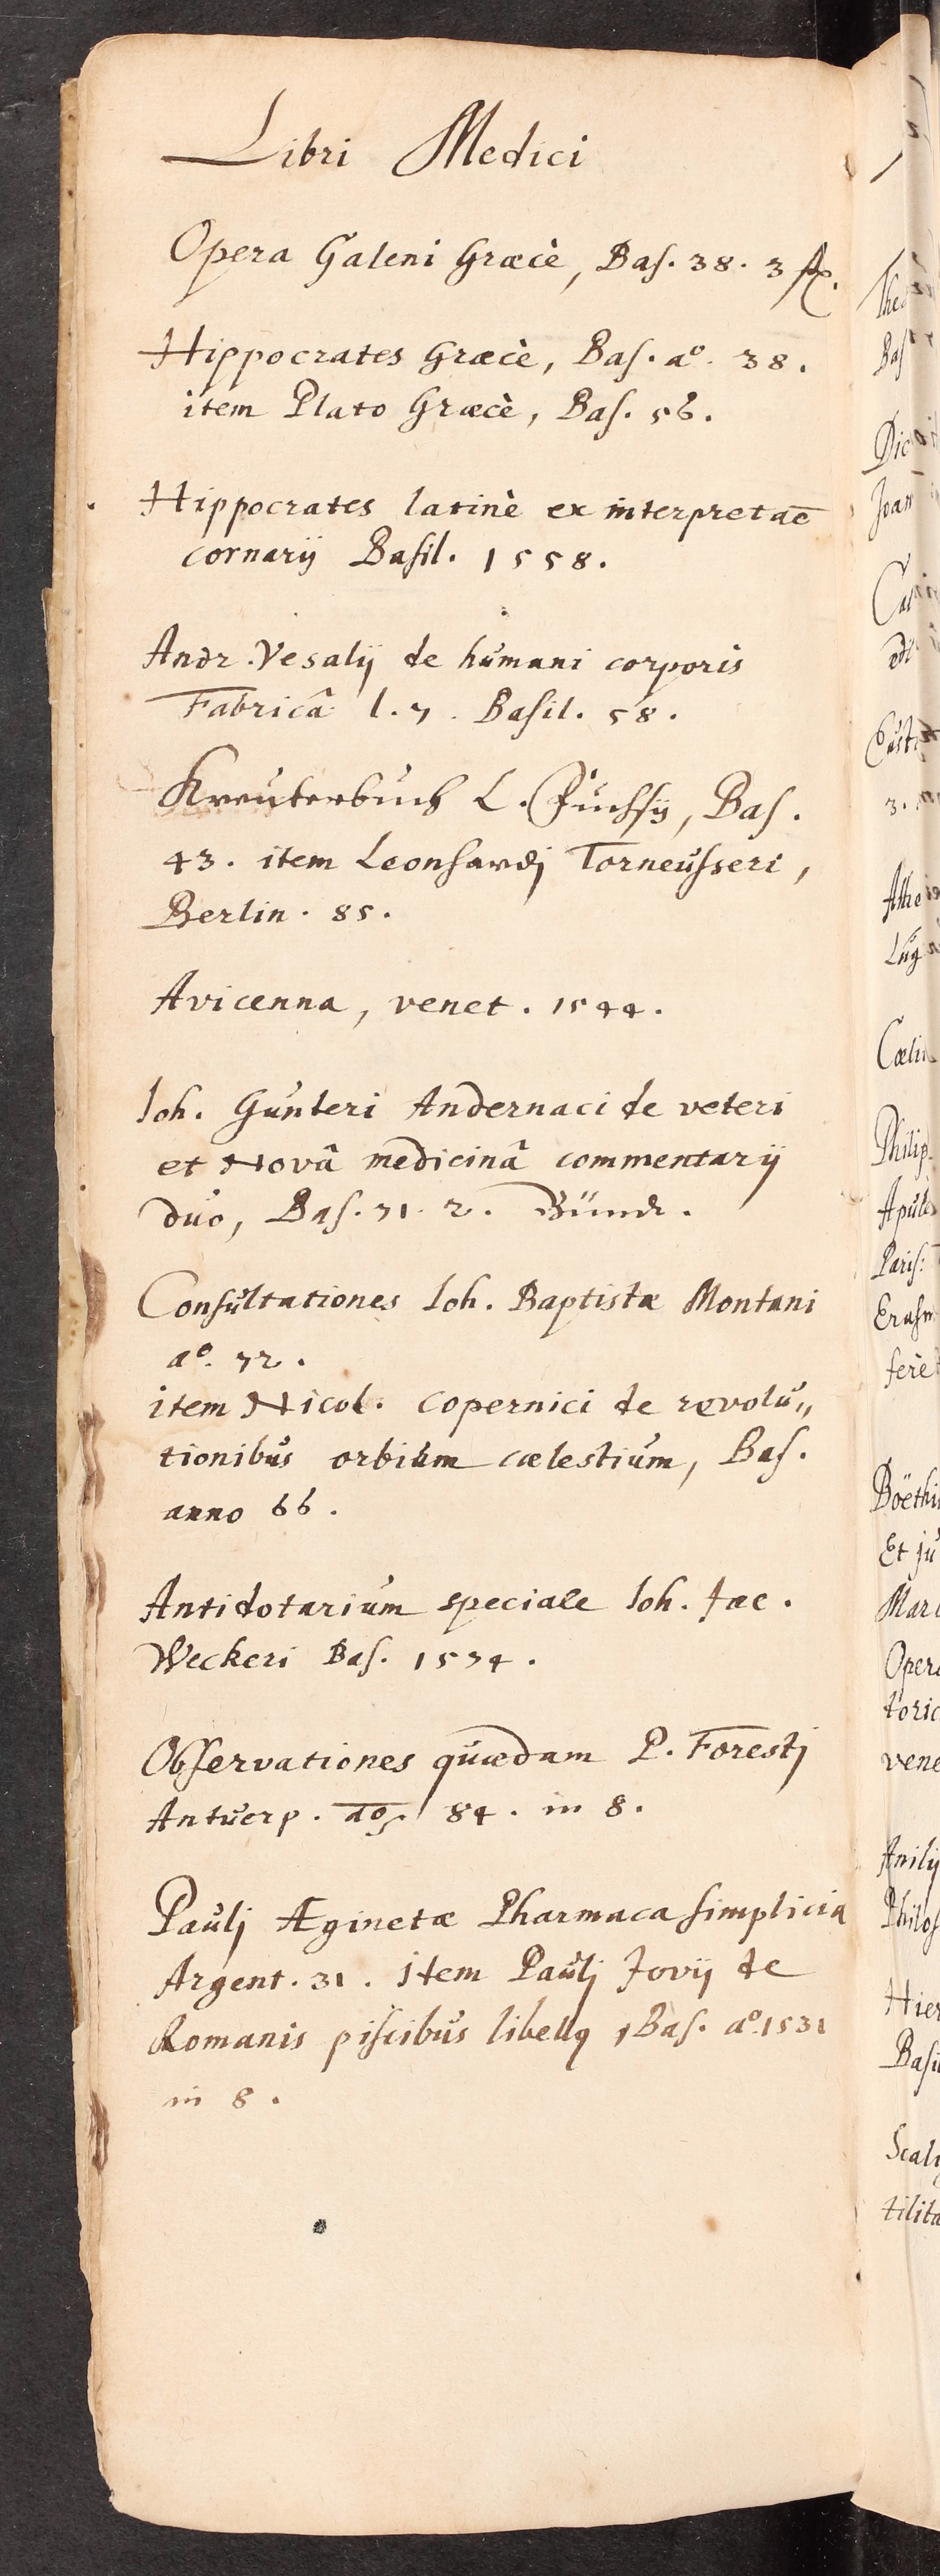 Libri Medici
Opera Galeni Græcè, Bas. 38. 3
Hippocrates Græcè, Bas. a⁰. 38.
item Plato Græcè, Bas. 56.
Hippocrates latinè ex interpretac̄
cornarij Basil. 1558.
Andr. Vesalij de humani corporis
Fabricâ l. 7. Basil. 58.
Kreuterbuch L. Fuchsij, Bas.
43. item Leonhardj Torneusseri,
Berlin. 85.
Avicenna, venet. 1544.
Ioh. Gunteri Andernaci de veteri
et Novâ medicinâ commentarij
duo, Bas. 71. 2. Bündt.
Consultationes Ioh. Baptistæ Montani
a⁰. 72.
item Nicol. Copernici de revolu„
tionibus orbium cælestium, Bas.
anno 66.
Antidotarium speciale Ioh. Jac.
Weckeri Bas. 1574.
Observationes quædam P. Forestj
Antuerp. ao 84. in 8.
Paulj Æginetæ Pharmaca simplicia
Argent. 31. Item Paulj Jovij de
Romanis piscibus libellꝰ, Bas. a⁰. 1531
in 8.